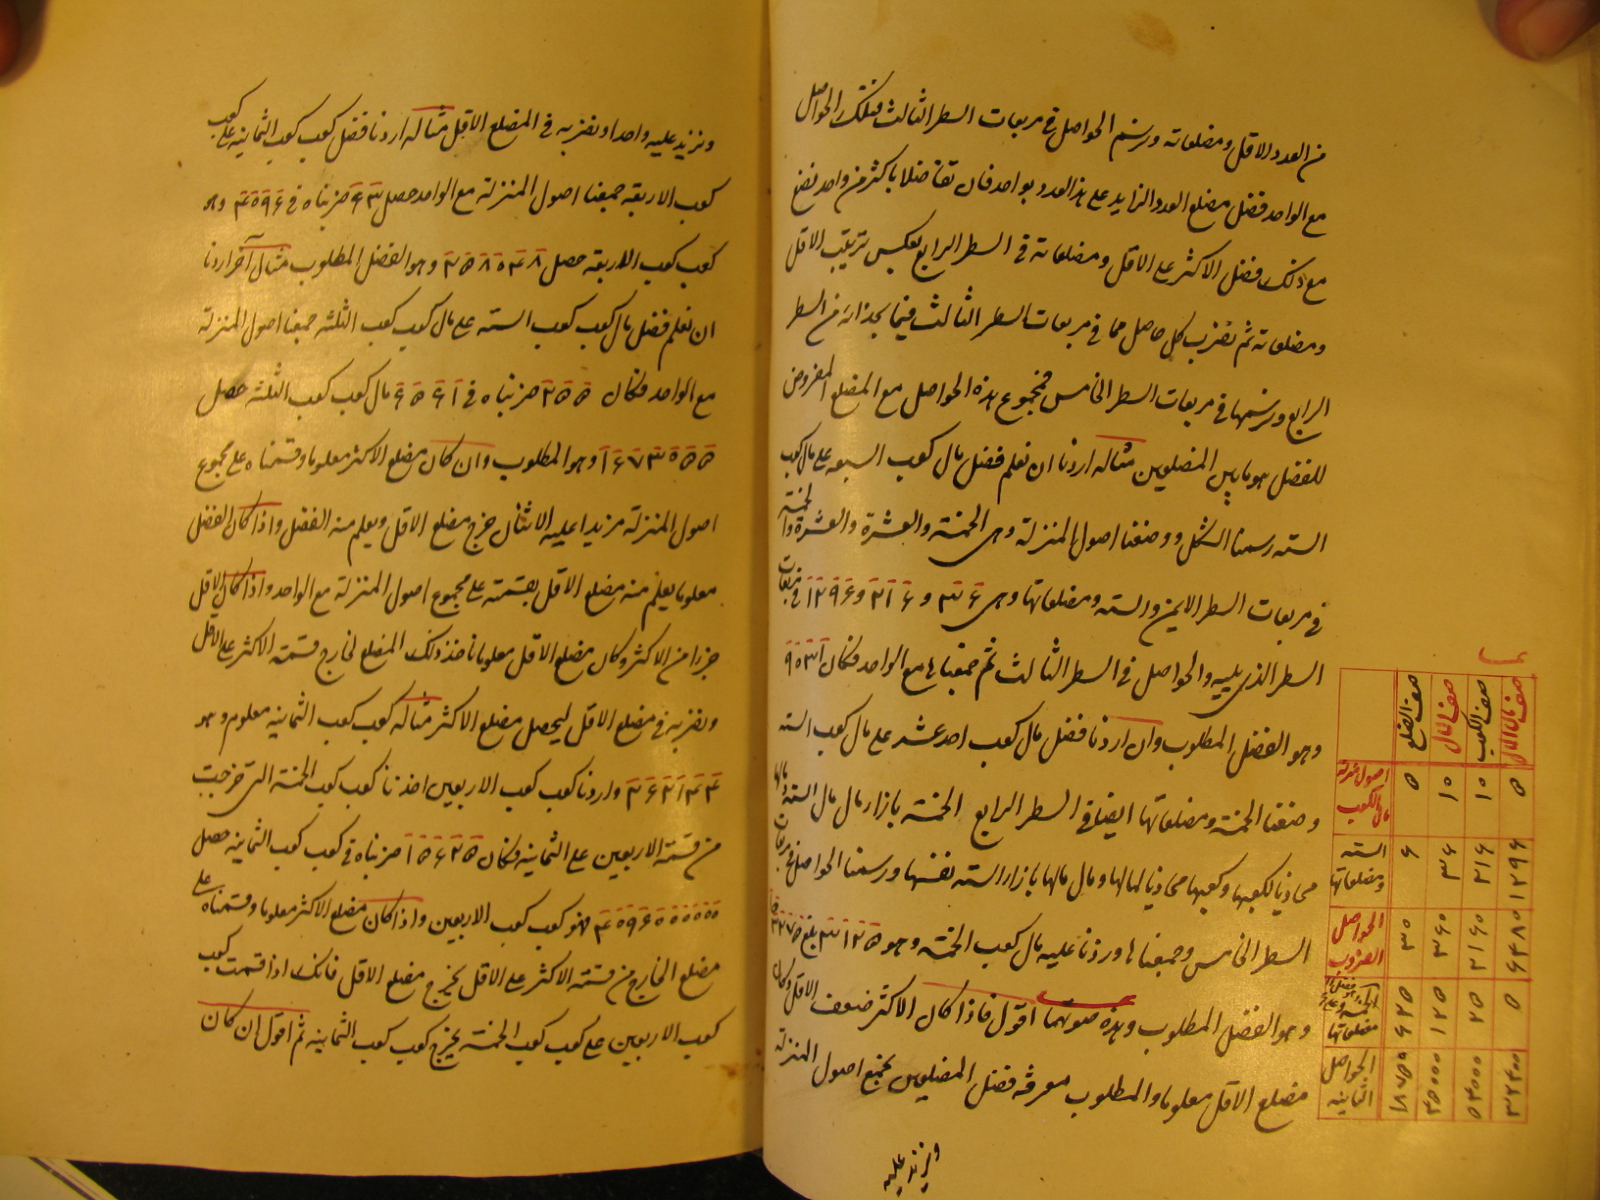 من العدد الاقل ومضلعاته ونرسم الحواصل في مربعات السطر الثالث فتلك الحواصل
مع الواحد فضل مضلع العدد الزايد على هذا العدد بواحد فان تفاضلا باكثر من واحد نضع
مع ذلك فضل الاكثر على الاقل ومضلعاته في السطر الرابع بعكس ترتيب الاقل
ومضلعاته ثم نضرب كل حاصل مما في مربعات السطر الثالث فيما بحذائه من السطر
الرابع ونرسمها في مربعات السطر الخامس فمجموع هذه الحواصل مع المضلع المفروض
للفضل هو ما بين المضلعين مثاله اردنا ان نعلم فضل مال كعب السبعه على مال كعب
السته رسمنا الشكل ووضعنا اصول المنزلة وهي الخمسة والعشرة والعشرة والخمسة
في مربعات السطر الايمن والسته ومضلعاتها وهي ٣٦ و ٢١٦ و ١٢٩٦ في مربعات
السطر الذي يليه والحواصل في السطر الثالث ثم جمعناها مع الواحد فكان ٩٠٣١
وهو الفضل المطلوب وان اردنا فضل مال كعب احد عشر على مال كعب السته
وضعنا الخمسة ومضلعاتها ايضا في السطر الرابع الخمسة بازاء مال مال السته ومالها
محاذيا لكعبها وكعبها محاذيا لمالها ومال مالها بازاء السته نفسها ورسمنا الحواصل في مربعات
السطر الخامس وجمعناها وزدنا عليه مال كعب الخمسة وهو ٣١٢٥ بلغ
وهو الفضل المطلوب وهذه صورتهما اقول فاذا كان الاكثر ضعف الاقل وكان
مضلع الاقل معلوما والمطلوب معرفة فضل المضلعين نجمع اصول المنزلة
ونزيد عليه
صف الضلع صف المال صف الكعب صف مال المال
اصول منزلة مال الكعب ٥ ١٠ ١٠ ٥
السته ومضلعاتها ٦ ٣٦ ٢١٦ ١٢٩٦
الحواصل ٣٠ ٣٦٠ ٢١٦٠ ٦٤٨٠
الخمسة ومضلعاتها ٦٢٥ ١٢٥ ٢٥ ٥
الحواصل الثانيه ١٨٧٥٠ ٤٥٠٠٠ ٥٤٠٠٠ ٣٢٤٠٠
ونزيد عليه واحدا ونضربه في المضلع الاقل مثاله اردنا فضل كعب كعب الثمانيه على كعب
كعب الاربعة جمعنا اصول المنزلة مع الواحد حصل ٦٣ ضربناه في ٤٠٩٦ وهو
كعب كعب الاربعة حصل ٢٥٨٠٤٨ وهو الفضل المطلوب مثال آخر اردنا
ان نعلم فضل مال كعب كعب السته على مال كعب كعب الثلثه جمعنا اصول المنزلة
مع الواحد فكان ٢٥٥ ضربناه في ٦٥٦١ مال كعب كعب الثلثه حصل
١٦٧٣٠٥٥ وهو المطلوب وان كان مضلع الاكثر معلوما وقسمناه على مجموع
اصول المنزلة مزيدا عليه الاثنان خرج مضلع الاقل ويعلم منه الفضل واذا كان الفضل
معلوما يعلم منه مضلع الاقل بقسمته على مجموع اصول المنزلة مع الواحد واذا كان الاقل
جزءا من الاكثر وكان مضلع الاقل معلوما ناخذ ذلك المضلع لخارج قسمة الاكثر على الاقل
ونضربه في مضلع الاقل ليحصل مضلع الاكثر مثاله كعب كعب الثمانيه معلوم وهو
٢٦٢١٤٤ واردنا كعب كعب الاربعين اخذنا كعب كعب الخمسة التي خرجت
من قسمة الاربعين على الثمانيه فكان ١٥٦٢٥ ضربناه في كعب كعب الثمانيه حصل
٤٠٩٦٠٠٠٠٠٠ فهو كعب كعب الاربعين واذا كان مضلع الاكثر معلوما وقسمناه على
مضلع الخارج من قسمة الاكثر على الاقل يخرج مضلع الاقل فانك اذا قسمت كعب
كعب الاربعين على كعب كعب الخمسة يخرج كعب كعب الثمانيه ثم اقول ان كان